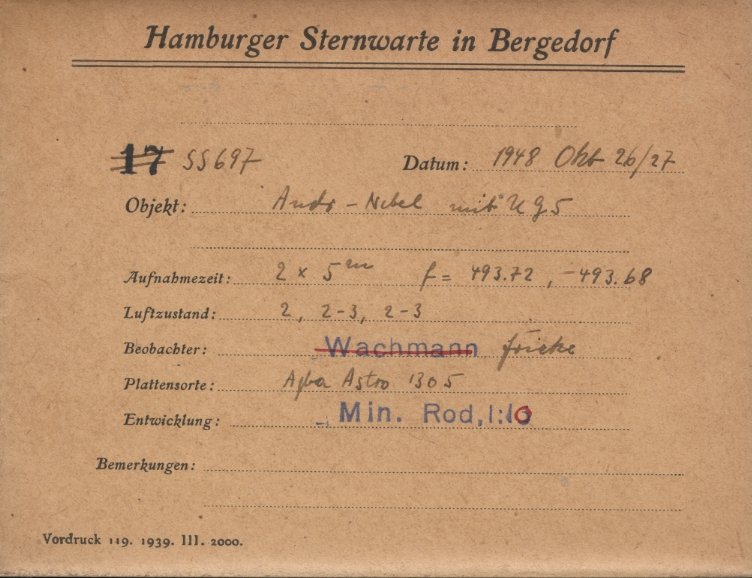 Hamburger Sternwarte in Bergedorf
17 SS697 Datum: 1948 Okt 26/27
Objekt: Andr-Nebel mit UG5
Aufnahmezeit: 2 x 5m f = 493.72, -493.68
Luftzustand: 2, 2-3, 2-3
Beobachter: Wachmann Fricke
Plattensorte: Agfa Astro 1305
Entwicklung: Min. Rod, 1:10
Bemerkungen:
Vordruck 119. 1939. III. 2000.